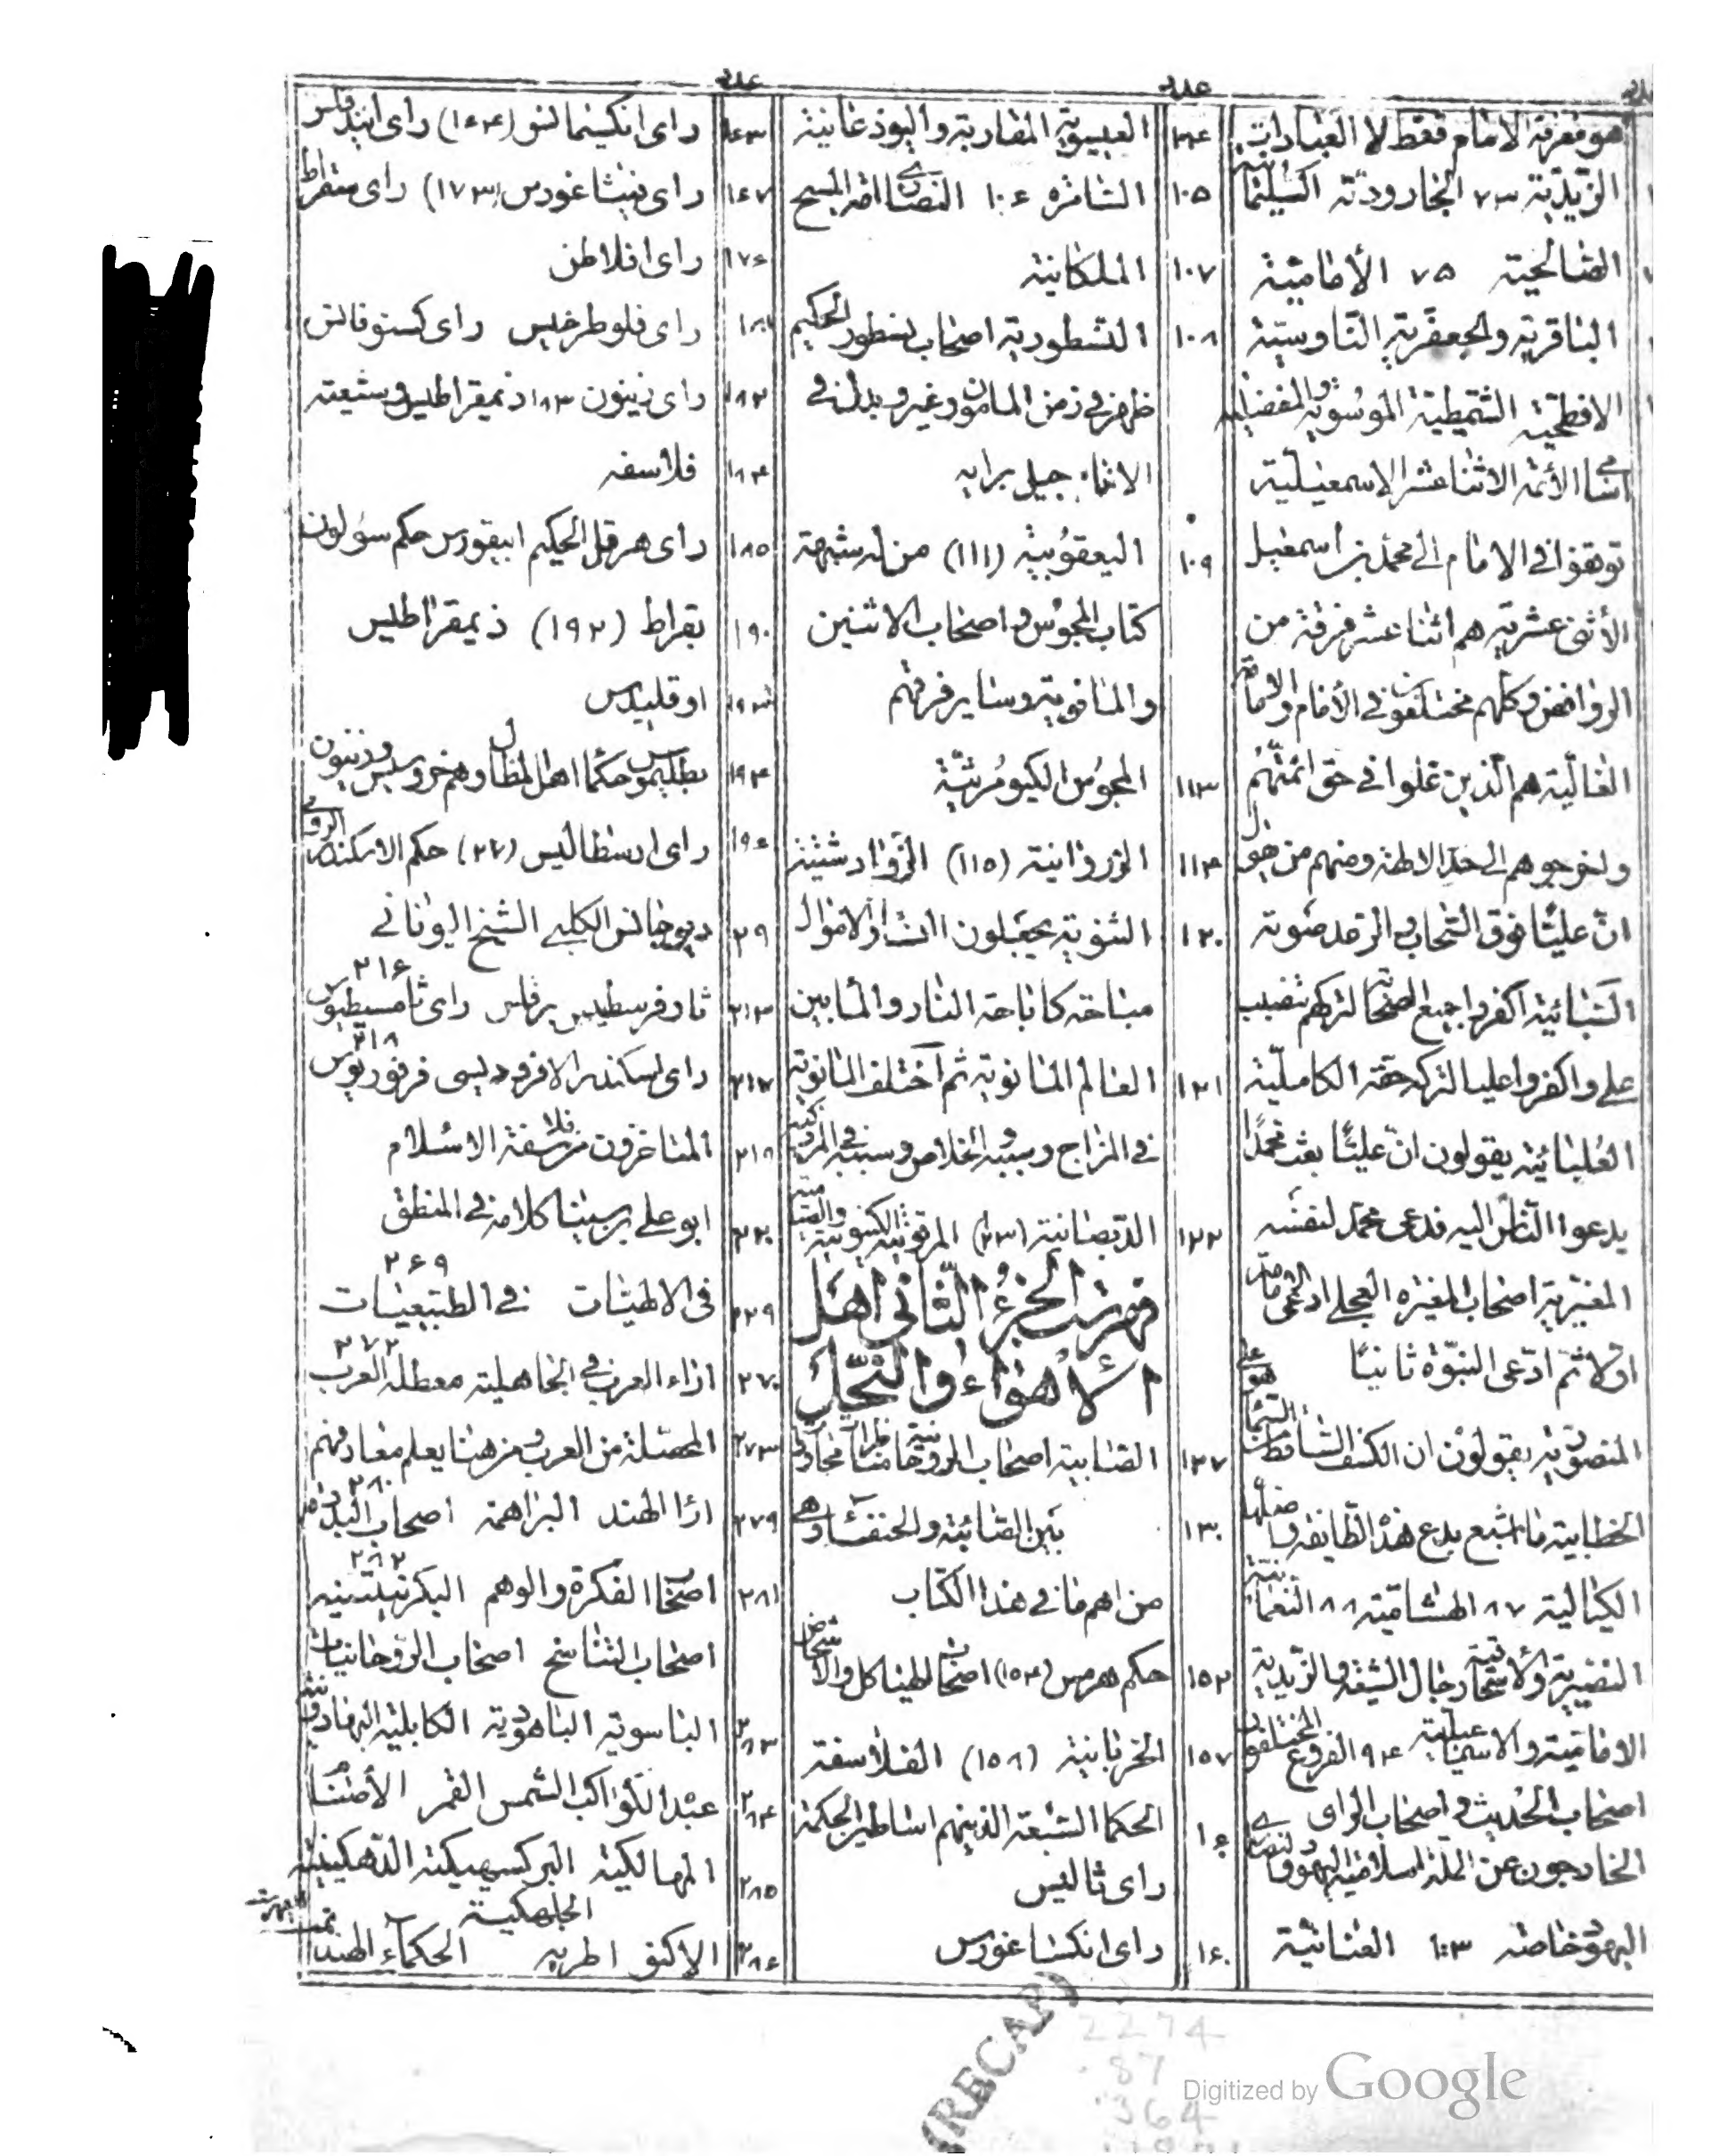 هو معرفة الامام فقط لا العبادات
الزيدية ٧٣ الجارودية السليمانية
الصالحية ٧٥ الأمامية
الباقرية والجعفرية الناوسية
الافطحية الشميطية الموسوية المفضلية
اسامي الأئمة الاثنا عشر الاسمعيلية
توقفوا في الامام الى محمد بن اسمعيل
الأثنى عشرية هم اثنا عشر فرقة من
الروافض وكلهم مختلفون في الأمام والامامة
الغالية هم الذين غلوا في حق ائمتهم
واخرجوهم الى حد الالهية ومنهم من يقول
ان عليًا فوق السحاب والرعد صوته
السبائية اكفروا جميع الصحابة لتركهم
على واكفروا عليا لتركه حقه الكاملية
العلبائية يقولون ان عليًا بعث محمدًا
يدعوا الناس اليه فدعى محمد لنفسه
المغيرية اصحاب المغيرة العجلي ادعى الامامة
اولا ثم ادعى النبوة ثانيًا
المنصورية يقولون ان الكسف الساقط من السماء هو على
الخطابية ما اشبع بدع هذه الطايفة
الكيالية ٨٧ الهشامية ٨٨ النعمانية
النصيرية والأسحاقية رجال الشيعة والزيدية
الامامية والاسماعيلية ٩٤ الفروع المختلفون
اصحاب الحديث واصحاب الراى
الخارجون عن الملة الاسلامية اليهود والنصارى
اليهود خاصة ١٠٣ العنانية
١٠٤ العيسوية المقاربة واليوذعانية
١٠٥ السامرة ١٠٦ النصارى امة المسيح
١٠٧ الملكانية
١٠٨ النسطورية اصحاب نسطور الحكيم
ظهر في زمن المامون وغير وبدل في
الاناجيل برايه
١٠٩ اليعقوبية (١١١) من له شبهة
كتاب المجوس و اصحاب الاثنين
والمانوية وساير فرقهم
١١٣ المجوس الكيومرثية
١١٤ الزروانية (١١٥) الزرادشتية
١٢٠ الثنوية يحيلون النساء والاموال
مباحة كاباحة النار والماء بين
١٢١ العالم المانوية ثم اختلف المانوية
في المزاج وسببه والخلاص وسببه المزدكية
١٢٢ الديصانية (١٢٣) المرقونية الكينوية والصيامية
فهرست الجزء الثاني اهل
الأهواء والنحل
١٢٧ الصابية اصحاب الروحانية مناظرات محاورات
١٣٠ بين الصابئة والحنفاء وهي
من اهم ما في هذا الكتاب
١٥٢ حكم هرمس (١٥٤) اصحاب الهياكل والاشخاص
١٥٧ الحرنانية (١٥٨) الفلاسفة
الحكما السبعة الذينهم اساطين الحكمة
راى ثاليس
١٦٠ راى انكساغورس
١٦٣ راى انكسيمانس (١٦٤) راى انبدقلس
١٦٧ راى فيثاغورس (١٧٣) راى سقراط
١٧٦ راى افلاطن
راى فلوطرخيس راى كسنوفانس
١٨٢ راى زينون ١٨٣ ذيمقراطيس وشيعته
١٨٤ فلاسفه
١٨٥ راى هرقل الحكيم ابيقورس حكم سولون
١٩٠ بقراط (١٩٢) ذيمقراطيس
١٩٣ اوقليدس
١٩٤ بطليموس حكما اهل المظال وهم خروسبس وزينون
١٩٦ راى ارسطاليس حكم الاسكندر الرومي
ديوجانس الكلبي الشيخ اليوناني
٢١٣ ثاوفرسطيس برقلس راى ثامسطيوس ٢١٦
٢١٧ راى اسكندر الافروديسي فرفوريوس ٢١٨
٢١٩ المتاخرون من فلاسفة الاسلام
٢٢٠ ابو على بن سينا كلامه في المنطق
٢٢٩ في الالهيات في الطبيعيات ٢٤٩
٢٧٠ اراء العرب في الجاهلية معطلة العرب ٢٧٢
٢٧٣ المحصلة من العرب من هنا يعلم معارفهم
٢٧٩ ارا الهند البراهمة اصحاب البددة ٢٨٠
٢٨١ اصحاب الفكرة والوهم البكرنتينية ٢٨٢
اصحاب التناسخ اصحاب الروحانيات
٢٨٣ الباسوية الباهودية الكابلية البهادونية
٢٨٤ عبدة الكواكب الشمس القمر الأصنام
٢٨٥ المهاكالية البركسهيكية الدهكينية
الجلهكية
٢٨٦ الاكنو اطريه الحكماء الهند
تمت الفهرست
(RECAP)
2274
.87
.364
Digitized by Google